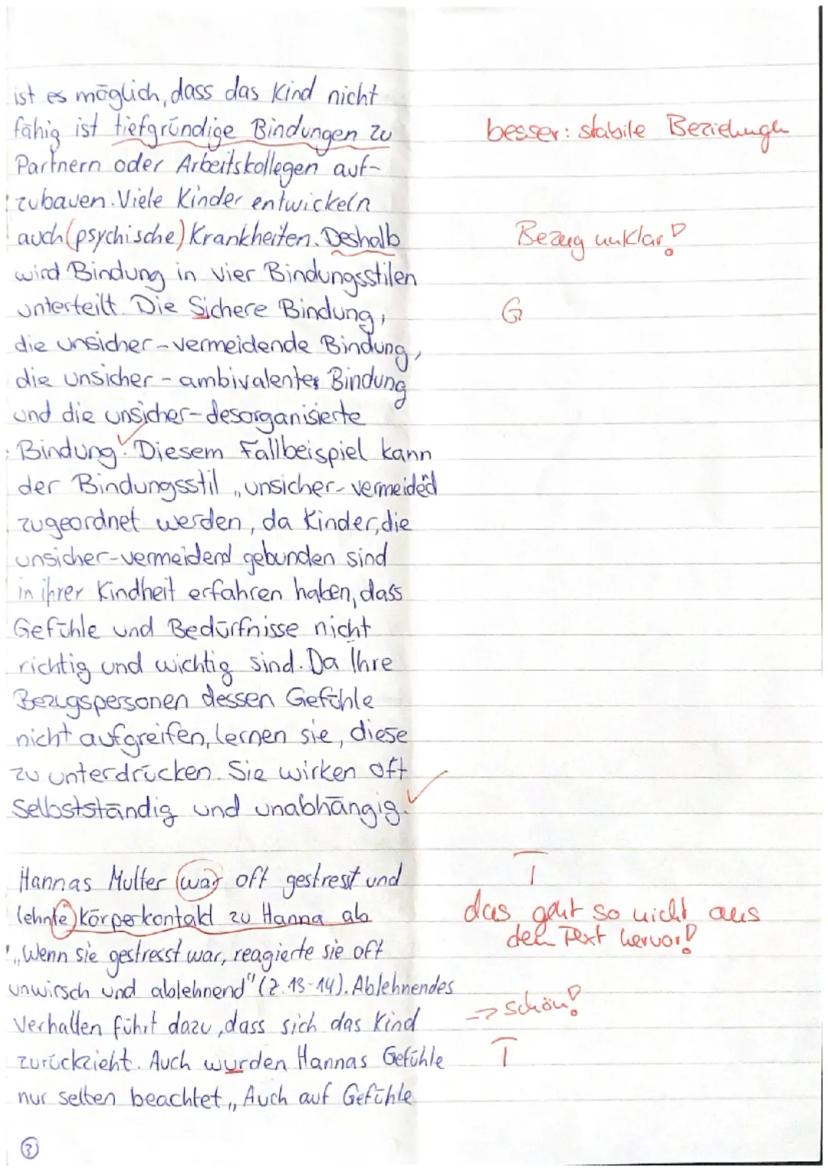 ist es möglich, dass das Kind nicht
fähig ist tiefgründige Bindungen zu
besser: stabile Beziehungen
Partnern oder Arbeitskollegen auf-
zubauen. Viele Kinder entwickeln
auch (psychische) Krankheiten. Deshalb
Bezug unklar!
wird Bindung in vier Bindungsstilen
unterteilt. Die Sichere Bindung,
G
die unsicher-vermeidende Bindung,
die unsicher-ambivalente Bindung
und die unsicher-desorganisierte
Bindung. Diesem Fallbeispiel kann
der Bindungsstil „unsicher-vermeided
zugeordnet werden, da Kinder, die
unsicher-vermeidend gebunden sind
in ihrer Kindheit erfahren haben, dass
Gefühle und Bedürfnisse nicht
richtig und wichtig sind. Da Ihre
Bezugspersonen dessen Gefühle
nicht aufgreifen, lernen sie, diese
zu unterdrücken. Sie wirken oft
Selbstständig und unabhängig.
Hannas Mutter war oft gestresst und
T
lehnte Körperkontakt zu Hanna ab
das geht so nicht aus
dem Text hervor!
„Wenn sie gestresst war, reagierte sie oft
unwirsch und ablehnend" (Z. 13-14). Ablehnendes
Verhalten führt dazu, dass sich das Kind
→ schön!
zurückzieht. Auch wurden Hannas Gefühle
T
nur selten beachtet „Auch auf Gefühle
3